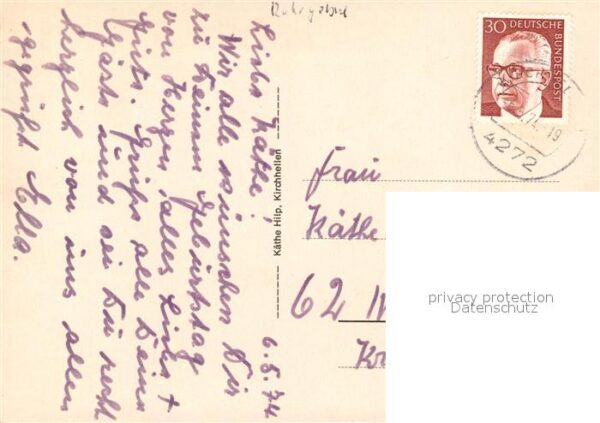 Ruhrgebiet
6.5.74
Liebe Käthe,
Wir alle wünschen Dir
zu Deinem Geburtstag
von Herzen alles Liebe +
Gute. Grüße alle Deine
Gäste und sei Du recht
herzlich von uns allen
gegrüßt Ella.
Käthe Hilp, Kirchhellen
30
DEUTSCHE
BUNDESPOST
74-19
4272
Frau
Käthe
62 W
Kr
privacy protection
Datenschutz